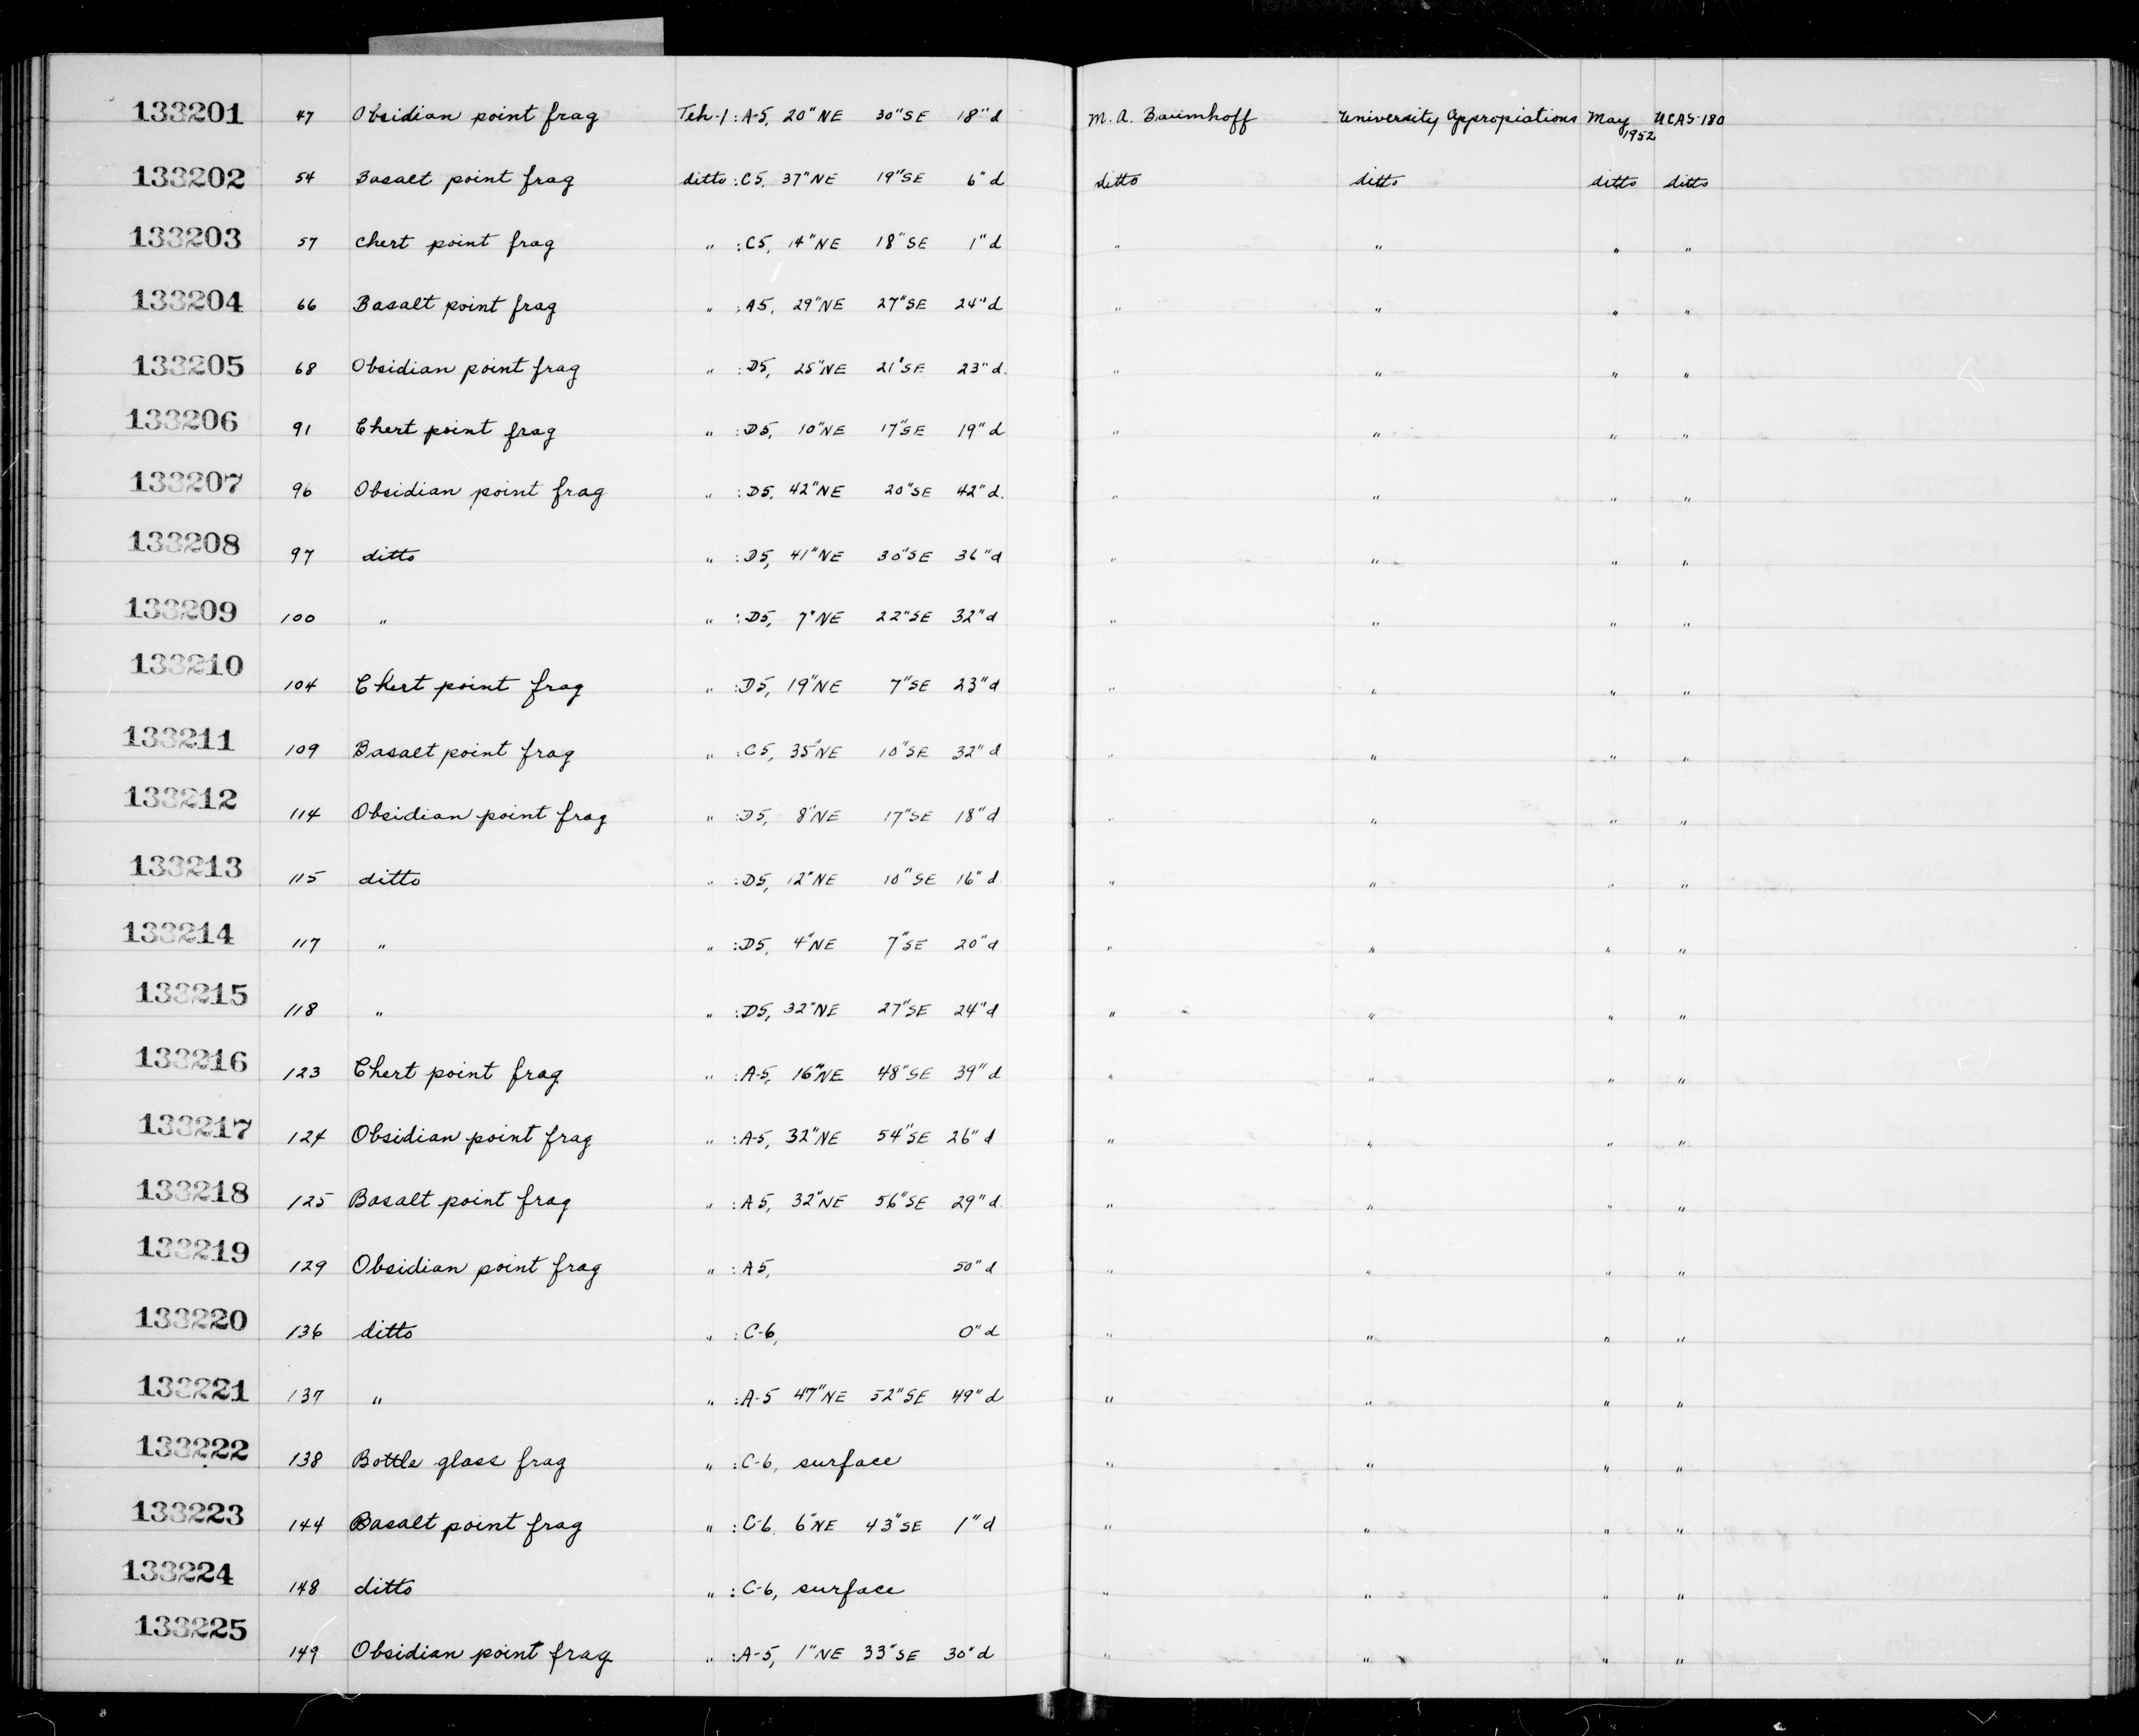 133201 47 Obsidian point frag Teh-1 : A-5, 20" NE 30" SE 18" d M. A. Baumhoff University Appropiations May 1952 UCAS-180
133202 54 Basalt point frag ditto : C5, 37" NE 19" SE 6" d ditto ditto ditto ditto
133203 57 chert point frag " : C5, 14" NE 18" SE 1" d " " " "
133204 66 Basalt point frag " : A5, 29" NE 27" SE 24" d " " " "
133205 68 Obsidian point frag " : D5, 25" NE 21" SE 23" d. " " " "
133206 91 Chert point frag " : D5, 10" NE 17" SE 19" d " " " "
133207 96 Obsidian point frag " : D5, 42" NE 20" SE 42" d. " " " "
133208 97 ditto " : D5, 41" NE 30" SE 36" d " " " "
133209 100 " " : D5, 7" NE 22" SE 32" d " " " "
133210 104 Chert point frag " : D5, 19" NE 7" SE 23" d " " " "
133211 109 Basalt point frag " : C5, 35" NE 10" SE 32" d " " " "
133212 114 Obsidian point frag " : D5, 8" NE 17" SE 18" d " " " "
133213 115 ditto " : D5, 12" NE 10" SE 16" d " " " "
133214 117 " " : D5, 4" NE 7" SE 20" d " " " "
133215 118 " " : D5, 32" NE 27" SE 24" d " " " "
133216 123 Chert point frag " : A-5, 16" NE 48" SE 39" d " " " "
133217 124 Obsidian point frag " : A-5, 32" NE 54" SE 26" d " " " "
133218 125 Basalt point frag " : A5, 32" NE 56" SE 29" d. " " " "
133219 129 Obsidian point frag " : A5, 50" d " " " "
133220 136 ditto " : C-6, 0" d " " " "
133221 137 " " : A-5 47" NE 52" SE 49" d " " " "
133222 138 Bottle glass frag " : C-6, surface " " " "
133223 144 Basalt point frag " : C-6, 6" NE 43" SE 1" d " " " "
133224 148 ditto " : C-6, surface " " " "
133225 149 Obsidian point frag " : A-5, 1" NE 33" SE 30" d " " " "